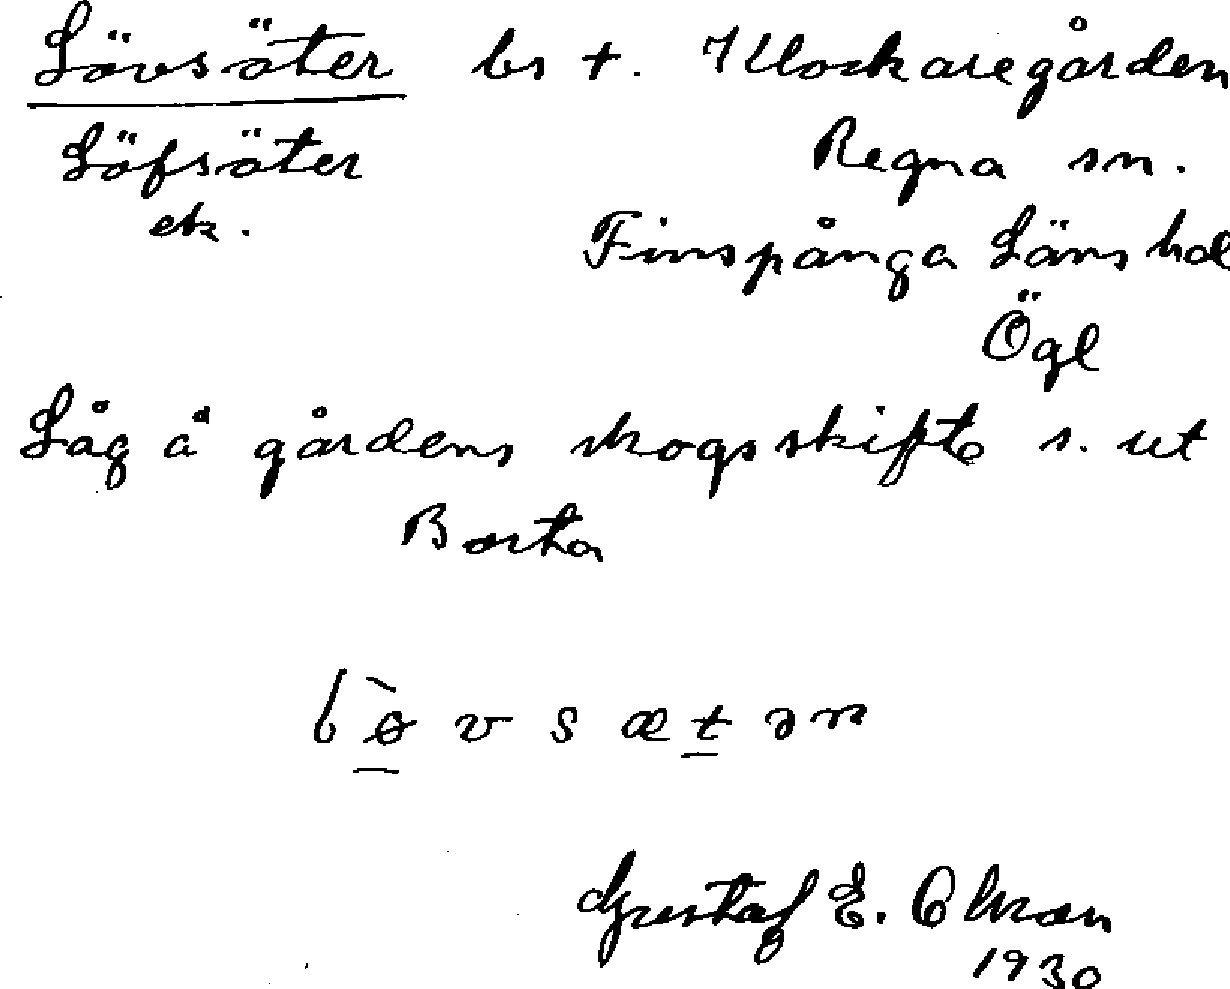 Lövsäter bs t. Klockaregården
Löfsäter Regna sn.
ek. Finspånga Läns hd
Ögl
Låg å gårdens skogsskifte s. ut
Borta
lø̀vsætər
Gustaf E.
1930